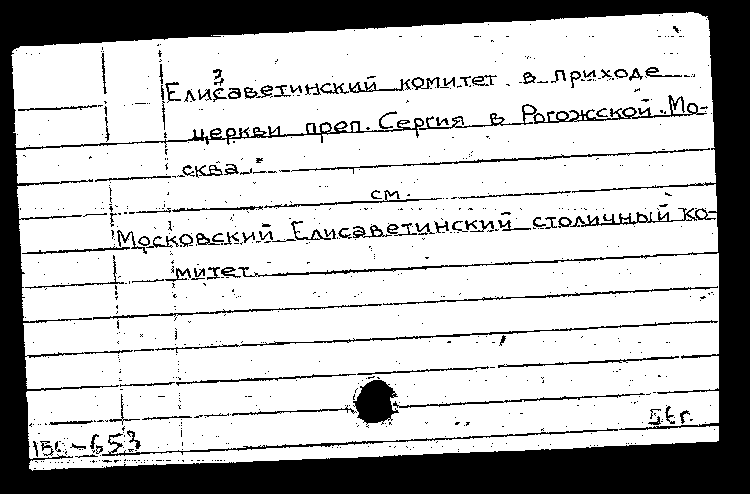 Елисаветинский комитет в приходе
церкви преп. Сергия в Рогожской. Мо-
сква.
см.
Московский Елисаветинский столичный ко-
митет.
56г.